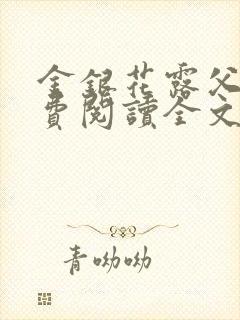 金銀花露父
費閱讀全文
青呦呦